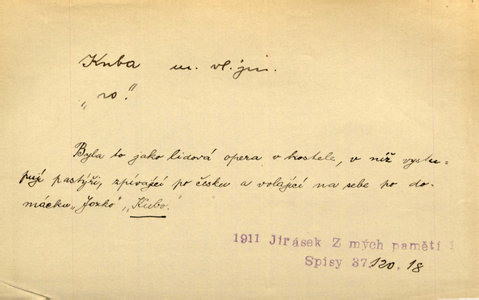 Kuba m. vl. jm.
„ro."
Byla to jako lidová opera v kostele, v níž vystu-
pují pastýři, zpívající po česku a volající na sebe po do-
mácku „Jozko", „Kubo."
1911 Jirásek Z mých pamětí 1
Spisy 37. 120. 18